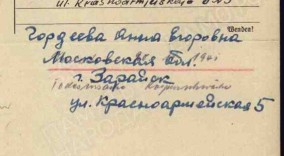 ul. Krasnoarmejskaja
Wenden!
Гордеева Анна Егоровна
Московская обл.
г. Зарайск
ул. Красноармейская 5